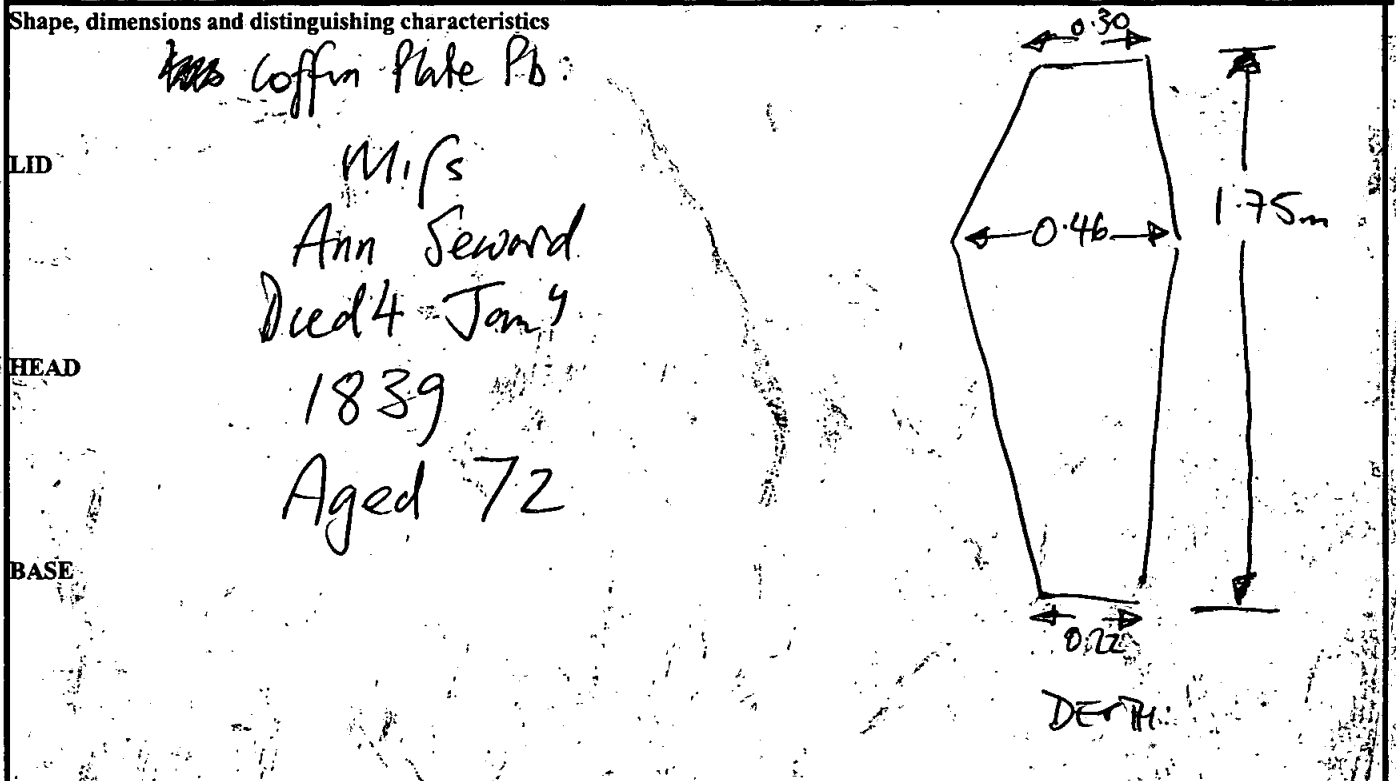 Shape, dimensions and distinguishing characteristics
Coffin Plate Pb:
LID
Miſs
Ann Seward
Died 4 Jany
HEAD
1839
Aged 72
BASE
0.30
0.46
1.75m
0.22
DEPTH: